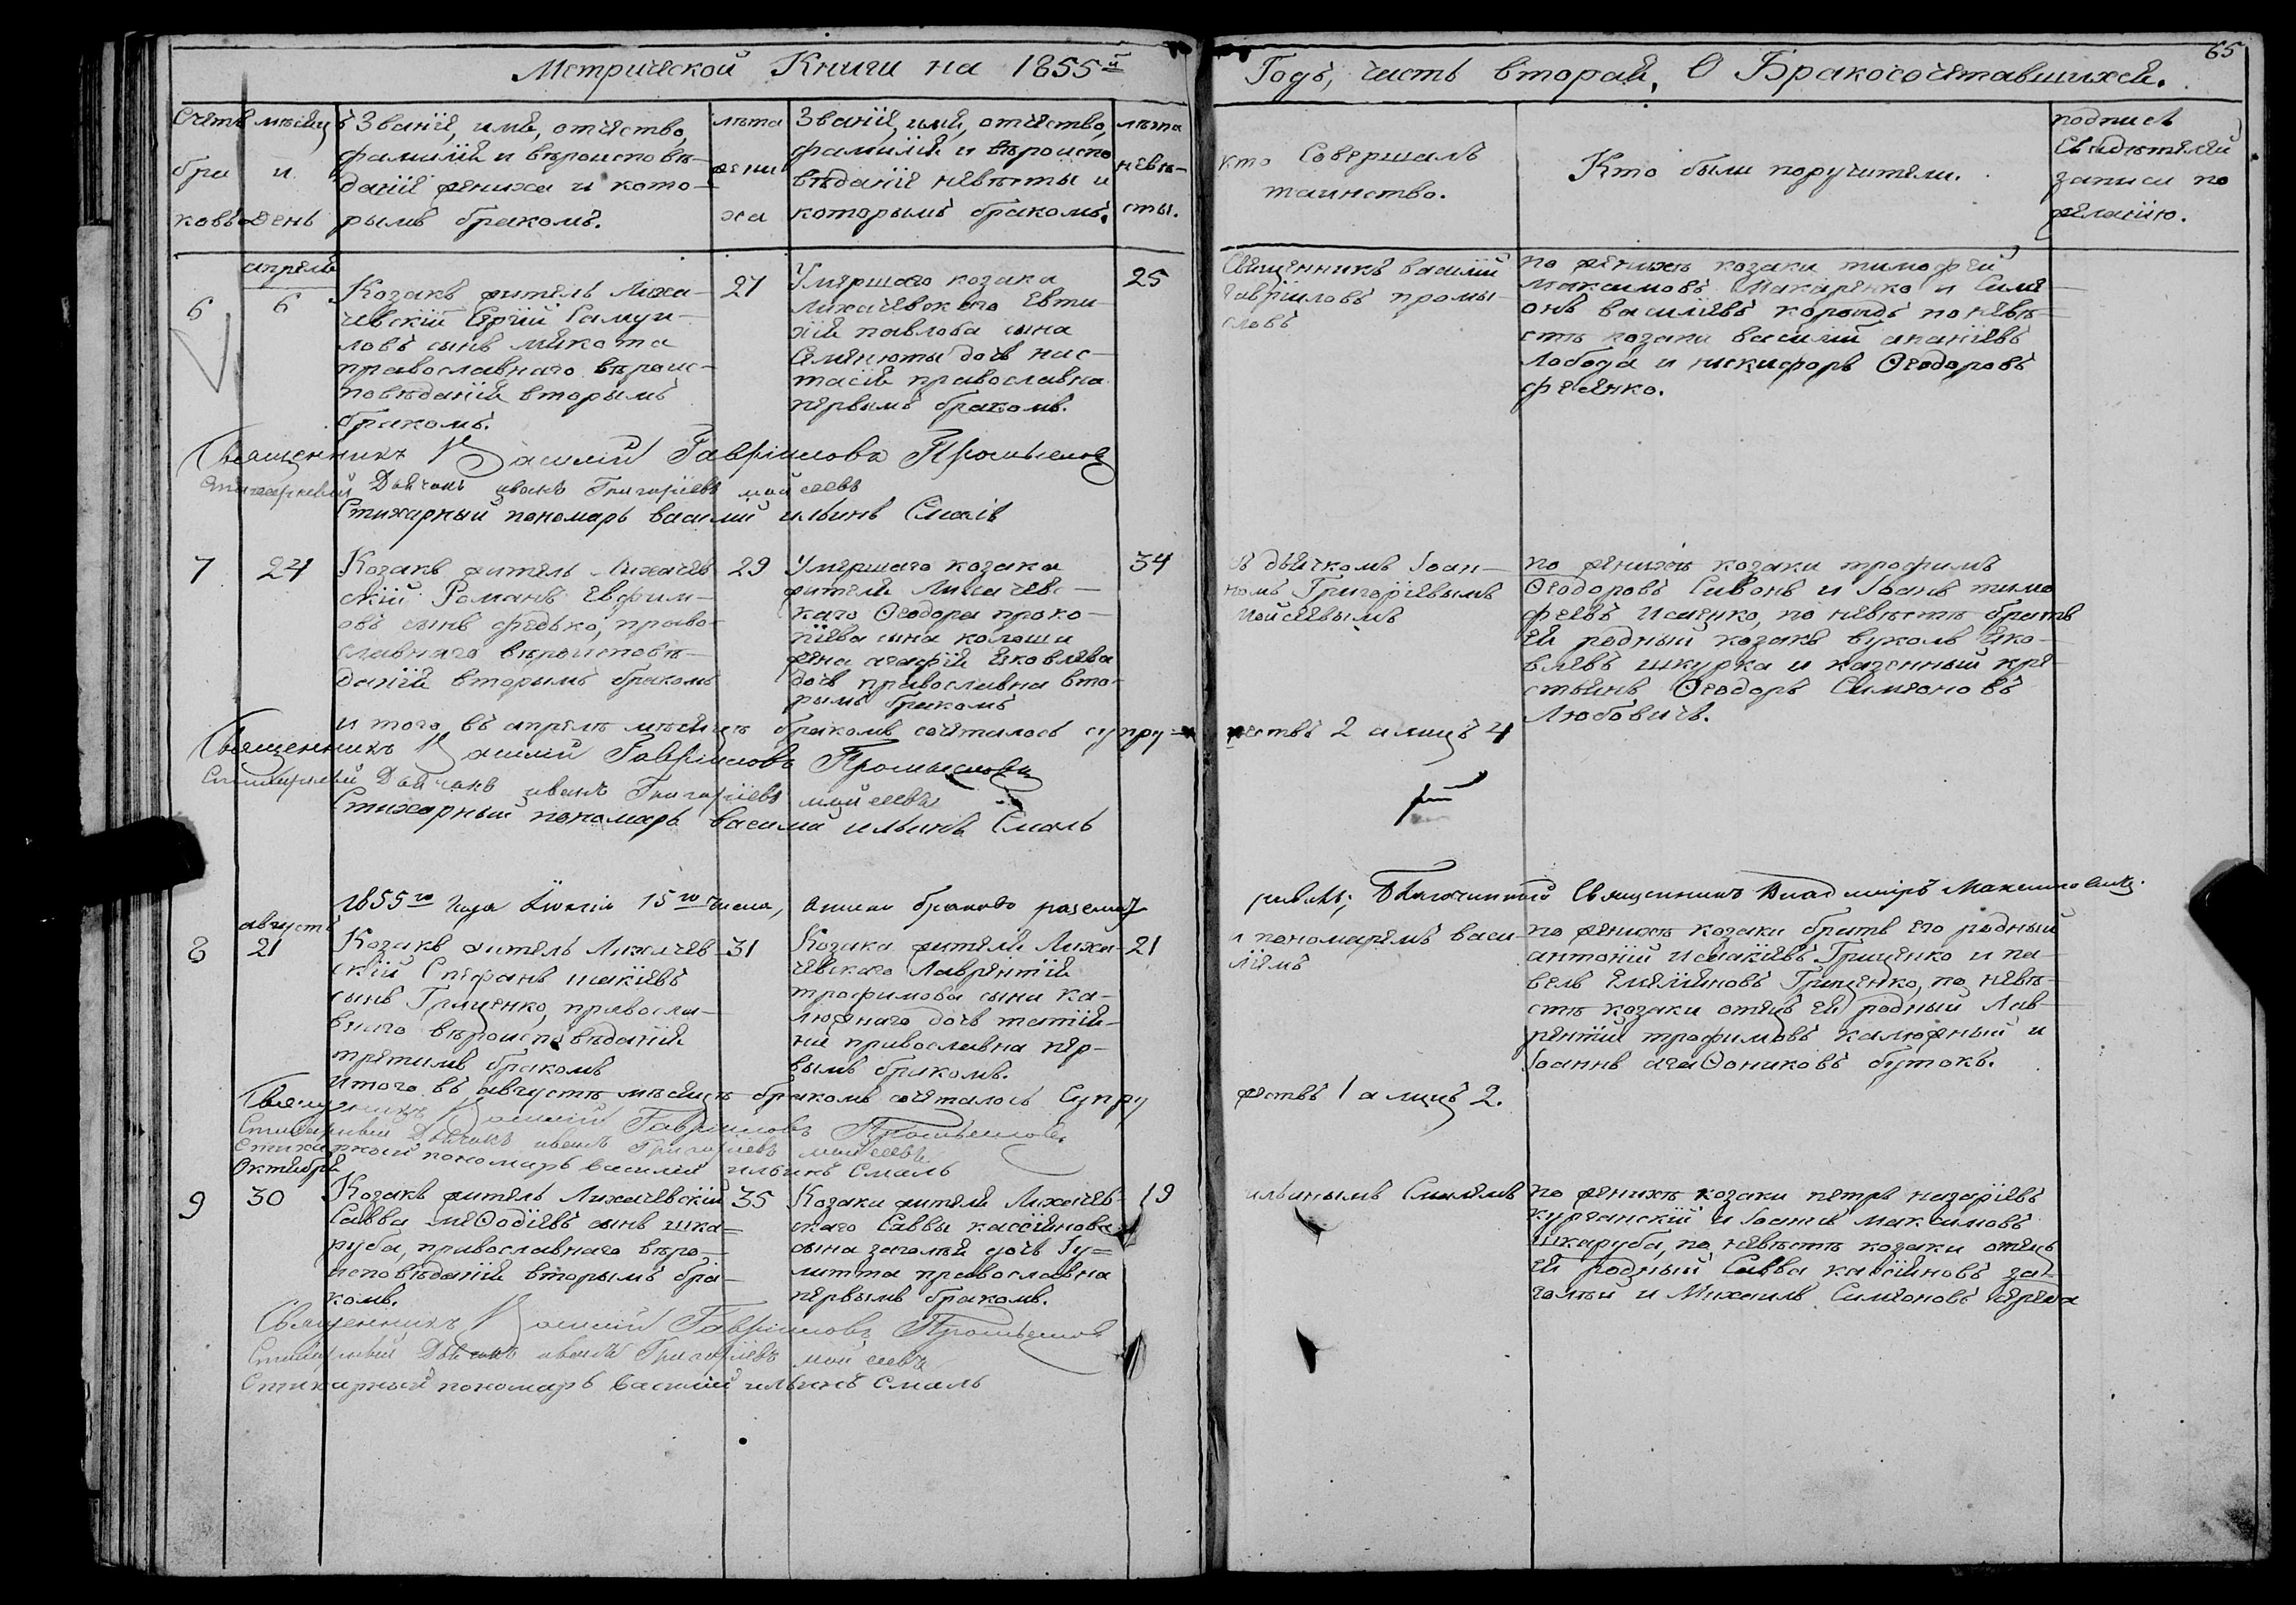 65
Метрической Книги на 1855й
Годъ, часть вторая, О Бракосочетавшихся.
Счетъ браковъ
месяцъ и день
Званіе, имя, отчество,
фамилія и вѣроисповѣ-
даніе жениха и кото-
рымъ бракомъ.
лѣта жениха
Званіе, имя, отчество,
фамилія и вѣроиспо
вѣданіе невѣсты и
которымъ бракомъ.
лѣта невѣ-
сты.
кто Совершалъ
таинство.
Кто были поручители.
подпись
Свидѣтелей
записи по
желанію.
апрель
6
6
Козакъ житель Лиха-
чевскій Сергій Самуи-
ловъ сынъ микота
православнаго вѣроис-
повѣданія вторымъ
бракомъ.
27
Умершаго козака
лихачевского Евти-
хія павлова сына
Семенюты дочь нас-
тасія православна
первымъ бракомъ.
25
Священникъ василій
гавріиловъ промы-
словъ
по женихѣ козаки тимофей
Максимовъ Макаренко и Симе-
онъ василіевъ по невѣ-
стѣ козаки василій ананіевъ
Лобода и никифоръ Ѳеодоровъ
Священникъ Василій Гавріиловъ Промысловъ
Стихарный Дьячокъ иванъ Григоріевъ мойсеевъ
Стихарный пономарь василий ильинъ Смаль
7
24
Козакъ житель Лихачев
скій Романъ Евфим-
овъ сынъ федько, право-
славнаго вѣроисповѣ-
данія вторымъ бракомъ
29
Умершаго козака
жителя Лихачевс-
каго Ѳеодора проко-
піева сына колоши
жена агафія яковлева
дочь православна вто-
рымъ бракомъ
34
съ дьячкомъ Іоан-
номъ Григоріевымъ
мойсеевымъ
по женихѣ козаки трофимъ
Ѳеодоровъ Сивонь и Іоанъ тимо
феевъ Исаенко, по невѣстѣ братъ
ей родный козакъ вуколъ яко-
влевъ шкурка и казенный кре-
стьянъ Ѳеодоръ Симеоновъ
Любовичъ.
и того въ апрелѣ мѣсяцѣ бракомъ сочеталось супру-
жествъ 2 а лицъ 4
Священникъ Василій Гавріиловъ Промысловъ
Стихарный Дьячокъ иванъ Григоріевъ мойсеевъ
Стихарный пономарь василий ильинъ Смаль
1855го года Іюлія 15го числа,
Благочинный Священникъ Владиміръ
августъ
8
21
Козакъ житель Лихачев
скій Стефанъ исакіевъ
сынъ Гриценко, правосла-
внаго вѣроисповѣданія
третимъ бракомъ
31
Козака жителя Лиха-
чевскаго Лаврентія
трофимова сына ка-
люжнаго дочь татія-
на православна пер-
вымъ бракомъ.
21
и пономаремъ васи-
ліемъ
по женихѣ козаки братъ его родный
антоній исаакіевъ Гриценко и па-
велъ Емеліяновъ Гриценко, по невѣ-
стѣ козаки отецъ ей родный Лав-
рентій трофимовъ калюжный и
Іоаннъ агаѲониковъ бутокъ.
Итого въ августѣ мѣсяцѣ бракомъ сочеталось Супру
жествъ 1 а лицъ 2.
Священникъ Василій Гавріиловъ Промысловъ
Стихарный Дьячокъ иванъ Григоріевъ мойсеевъ
Стихарный пономарь василий ильинъ Смаль
Октября
9
30
Козакъ житель Лихачевскій
Савва меѲодіевъ сынъ шка=
руба, православнаго вѣро-
исповѣданія вторымъ бра-
комъ.
35
Козака жителя Лихачев-
скаго Саввы кассіянова
сына заголья дочь Іу=
литта православна
первымъ бракомъ.
19
ильинымъ Смалемъ
по женихѣ козаки петръ назаріевъ
курганскій и Іоаннъ максимовъ
шкаруба, по невѣстѣ козаки отецъ
ей родный Савва касіяновъ за-
голый и Михаилъ Симеоновъ
Священникъ Василій Гавріиловъ Промысловъ
Стихарный Дьячокъ иванъ Григоріевъ мойсеевъ
Стихарный пономарь василий ильинъ Смаль